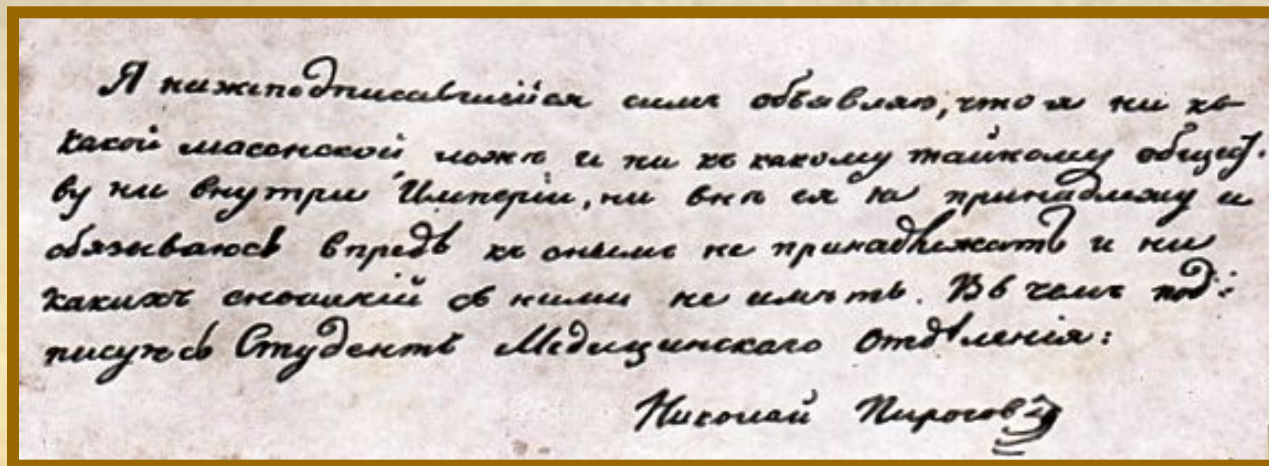 Я нижеподписавшийся симъ объявляю, что я ни къ
какой масонской ложѣ и ни къ какому тайному общест-
ву ни внутри Имперіи, ни внѣ ея не принадлежу и
обязываюсь впредь къ онымъ не принадлежать и ни
какихъ сношеній съ ними не имѣть. Въ чемъ под-
писуюсь Студентъ Медицинскаго Отдѣленія:
Николай Пироговъ